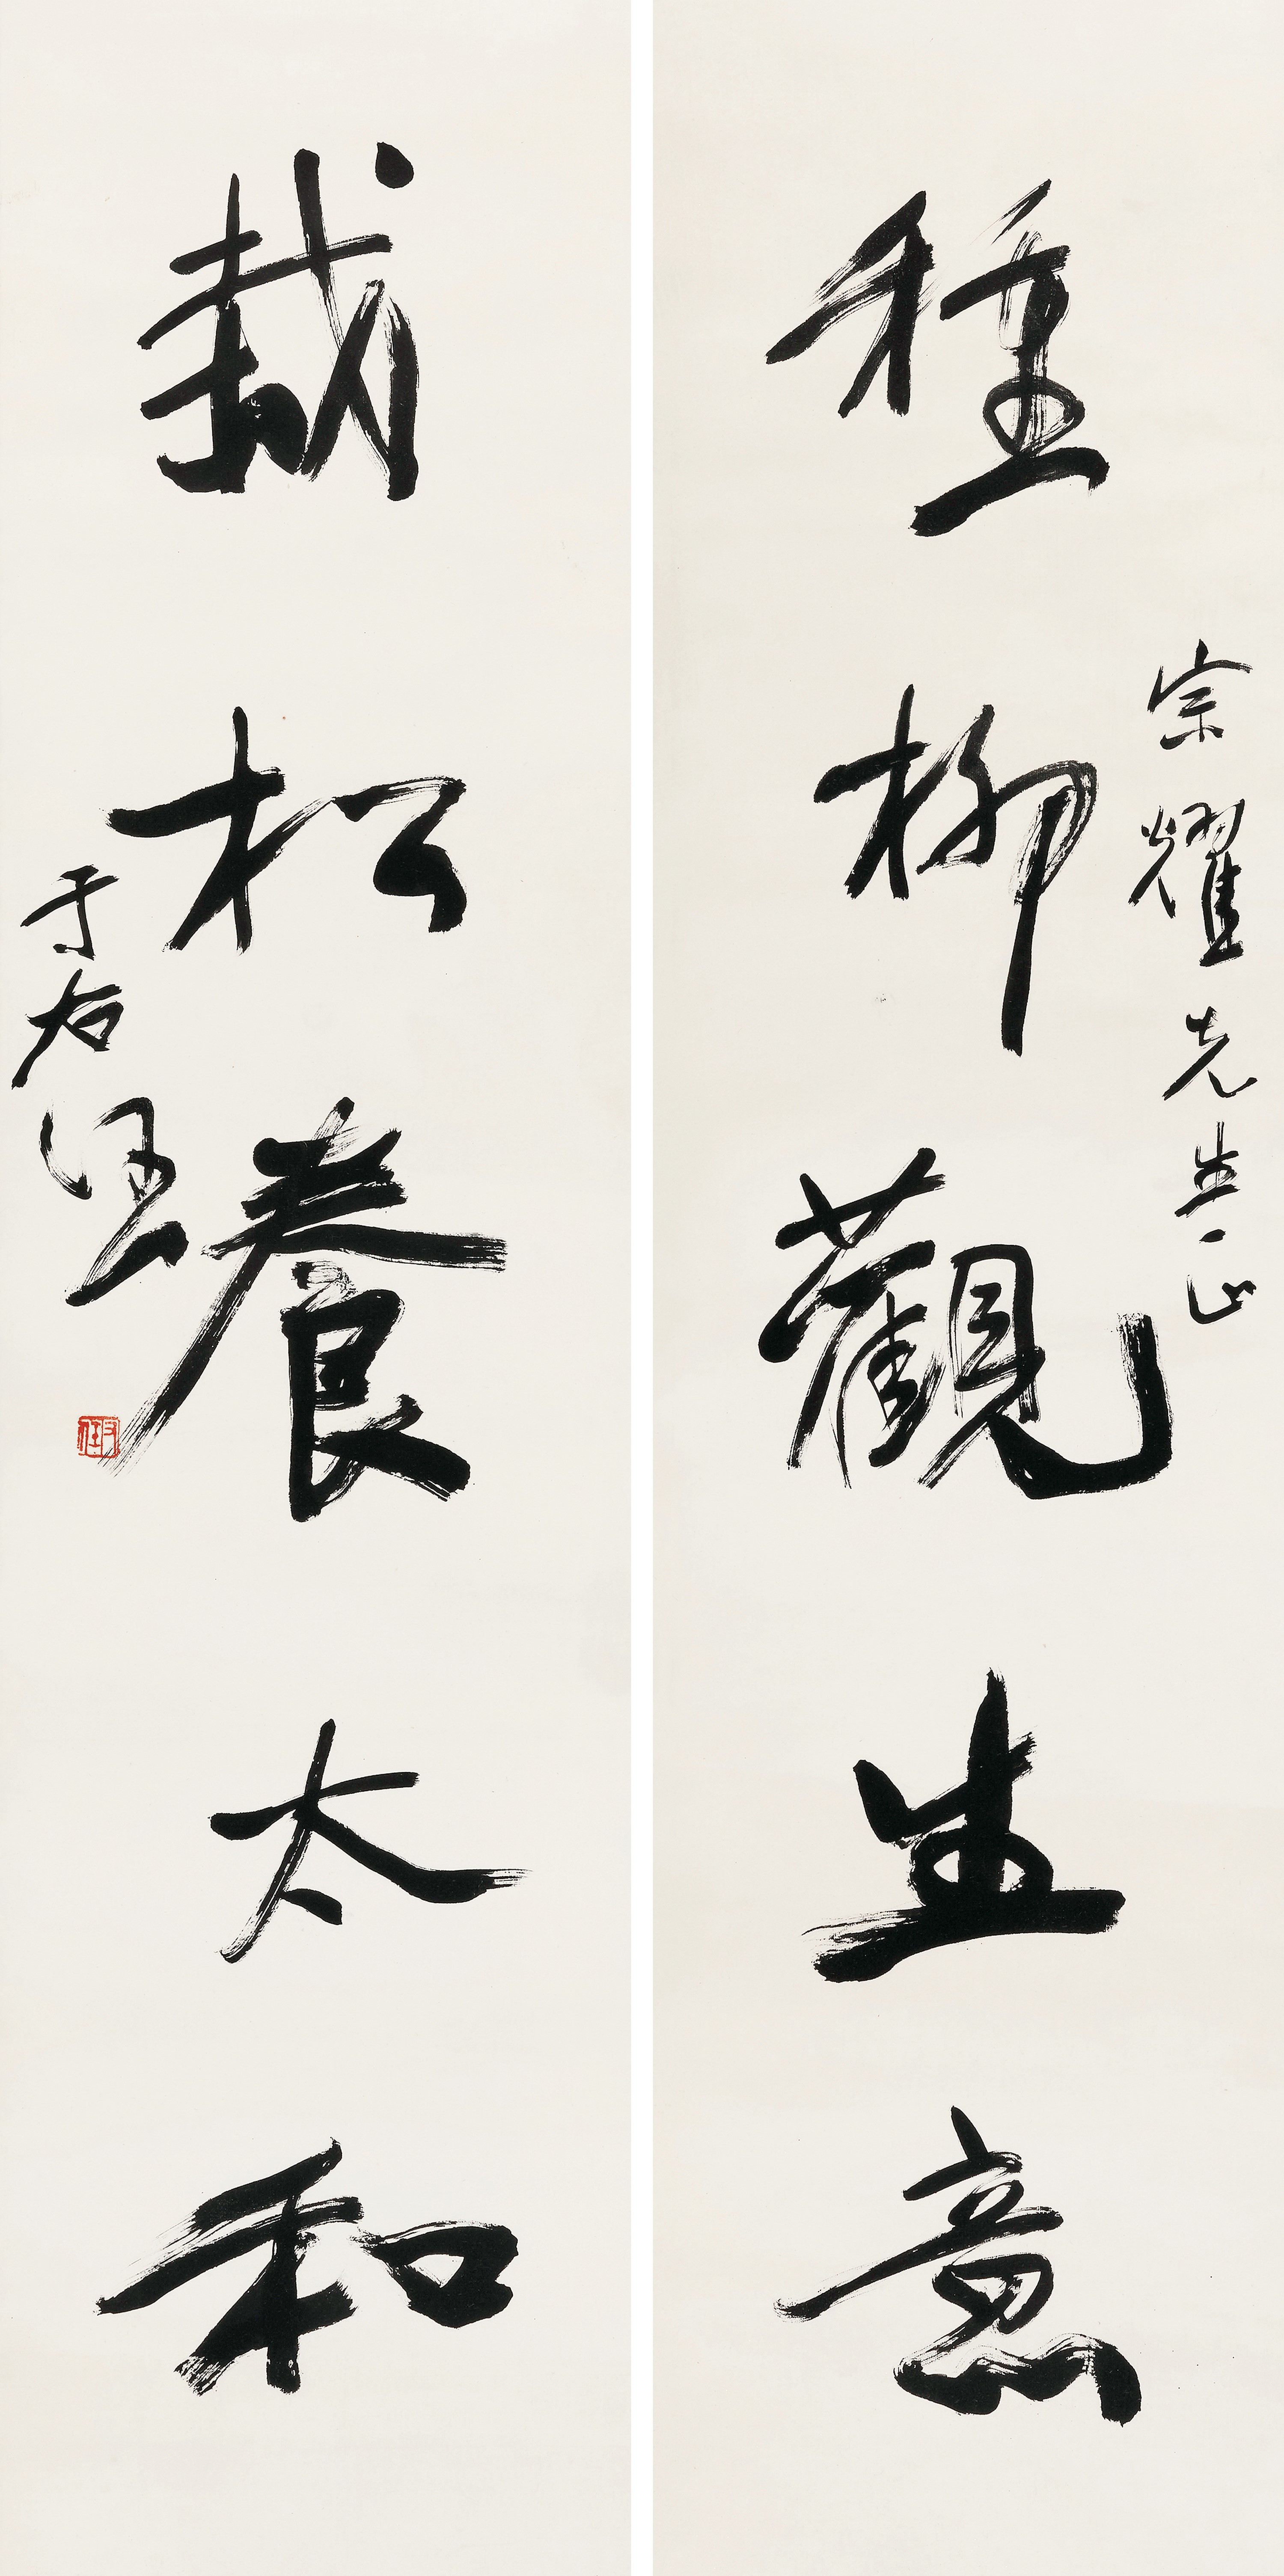 宗耀先生正
種柳觀生意
栽松養太和
于右任
右任